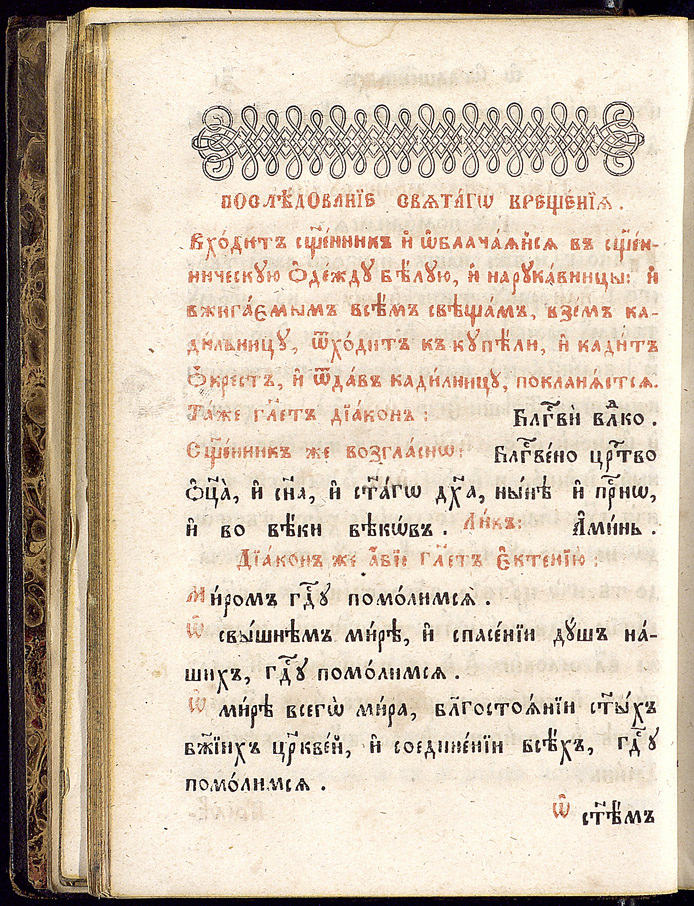 ПОСЛѢ́ДОВАНЇЕ СВЯТА́ГѠ КРЕЩЕ́НЇѦ.
Вхо́дитъ сщ҃е́нникъ и҆ ѡ҆блача́ѧйсѧ въ сщ҃е́н-
ническую ѻ҆де́жду бѣ́лую, и҆ нарука́вницы: и҆
вжига́ємымъ всѣ̑мъ свѣща́мъ, взе́мъ ка-
ди́льницу, ѿхо́дитъ къ купѣ́ли, и҆ кади́тъ
ѻ҆́крестъ, и҆ ѿда́въ кади́лницу, покланѧ́етсѧ.
Та́же гл҃етъ дїа́конъ: Бл҃гⷭ҇ви̑ влⷣко.
Сщ҃е́нникъ же возгла́снѡ: Бл҃гⷭ҇ве́но црⷭ҇тво
ѻ҆ц҃а̀, и҆ сн҃а, и҆ ст҃а́гѡ дх҃а, ны́нѣ и҆ при́снѡ,
и҆ во вѣ́ки вѣкѡ́въ. Ли́къ: А҆ми́нь.
Дїа́конъ же а҆́бїе гл҃етъ є҆ктенїю̀:
Ми́ромъ гдⷭ҇у помо́лимсѧ.
Ѡ҆ свы́шнѣмъ ми́рѣ, и҆ спасе́нїи ду́шъ на́-
шихъ, гдⷭ҇у помо́лимсѧ.
Ѡ҆ ми́рѣ всегѡ̀ мі́ра, бл҃госто́ѧнїи ст҃ы́хъ
бж҃їихъ цр҃кве́й, и҆ соедине́нїи всѣ́хъ, гдⷭ҇у
помо́лимсѧ.
Ѡ҆ ст҃ѣ́мъ